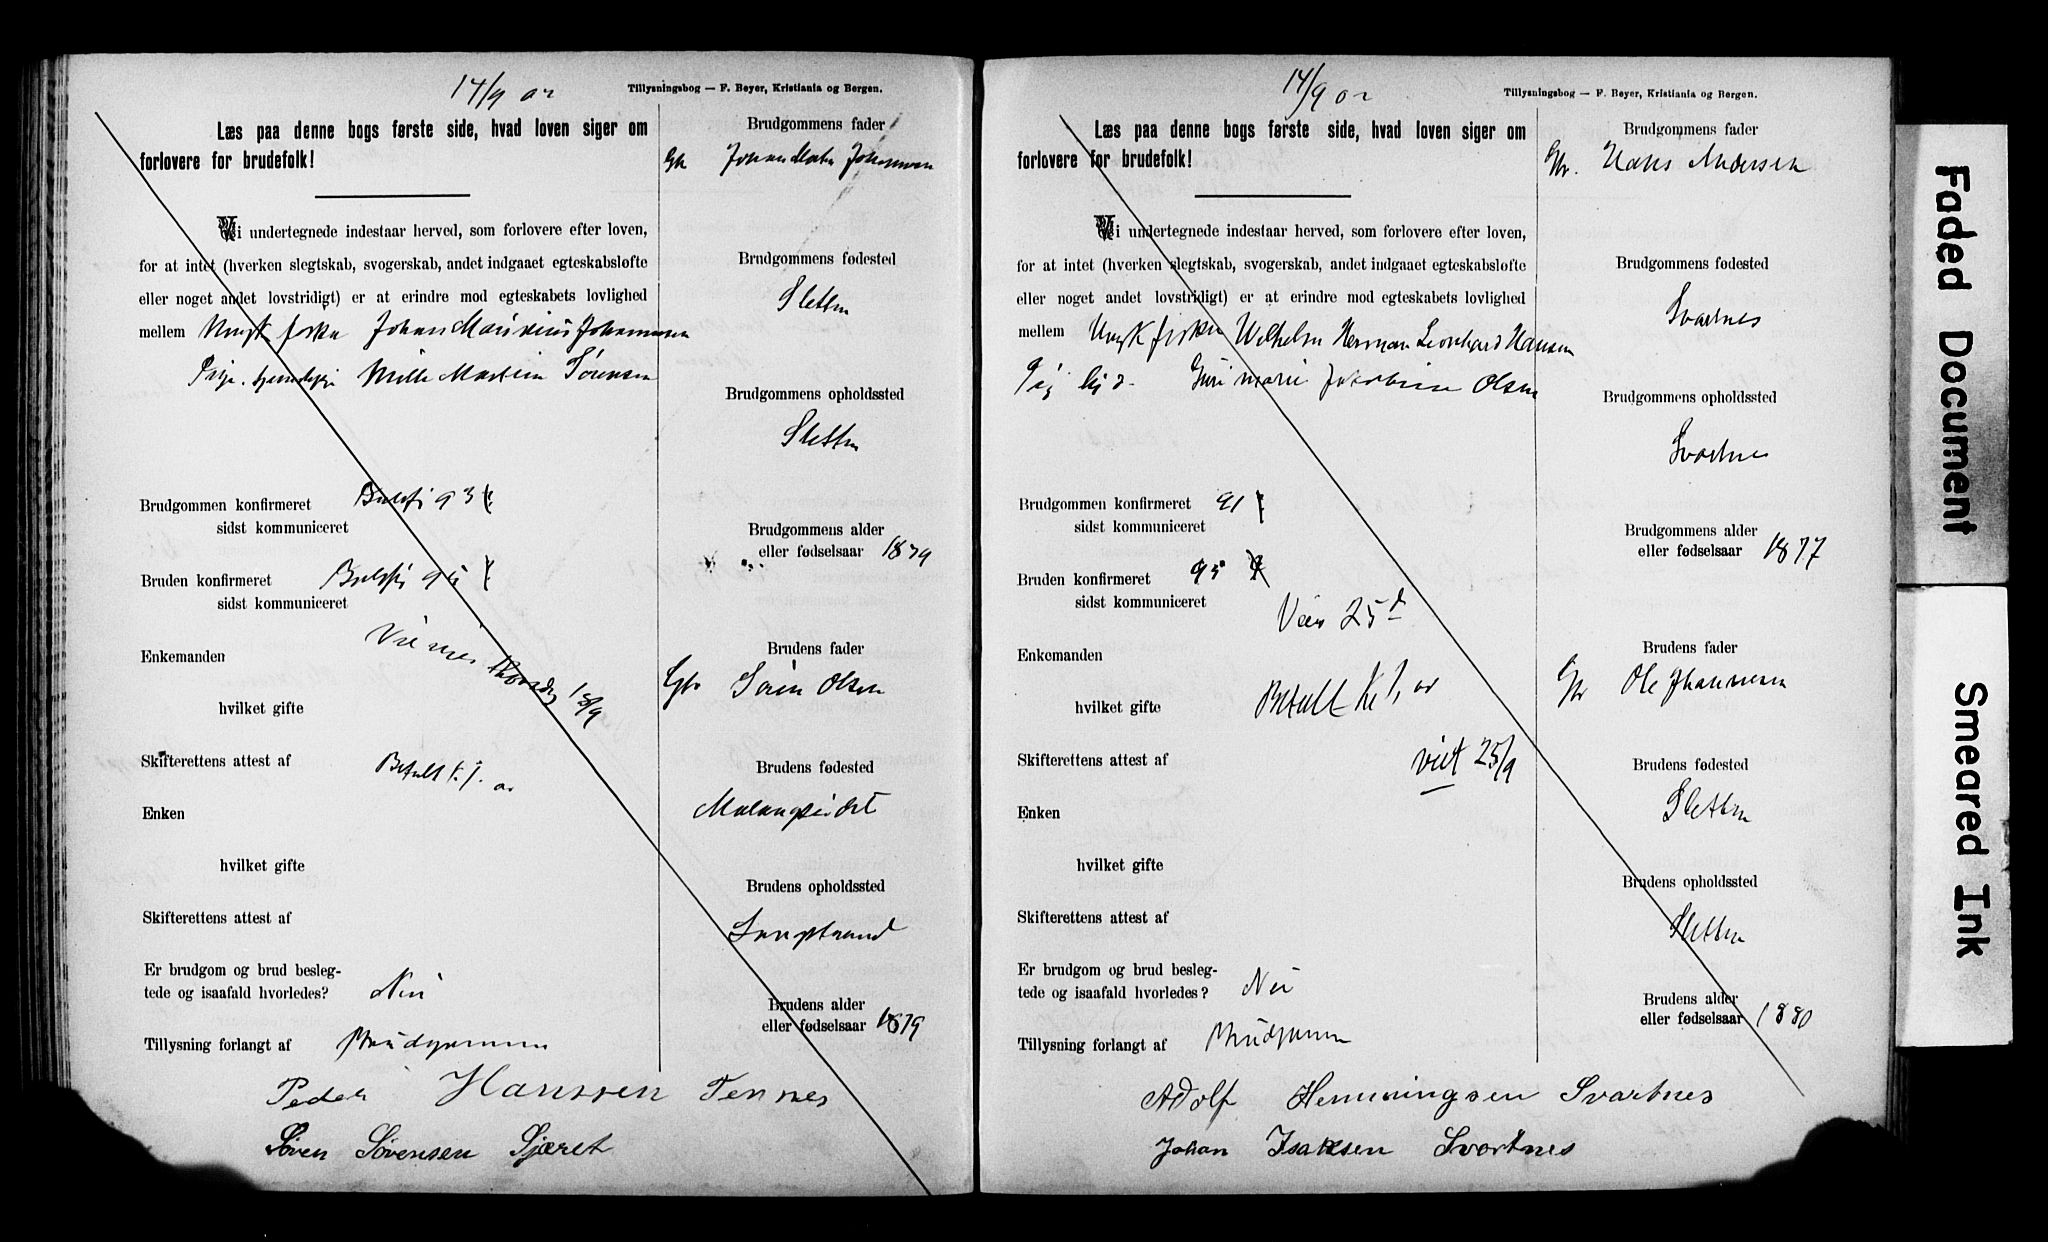 14/9 02
Tillysningsbog — F. Beyer, Kristiania og Bergen.
Læs paa denne bogs første side, hvad loven siger om
forlovere for brudefolk!
Vi undertegnede indestaar herved, som forlovere efter loven,
for at intet (hverken slegtskab, svogerskab, andet indgaaet egteskabsløfte
eller noget andet lovstridigt) er at erindre mod egteskabets lovlighed
mellem Ungk fisker Johan Johannessen
Pige Sørensen
Brudgommen konfirmeret 93
sidst kommuniceret
Bruden konfirmeret
sidst kommuniceret
Enkemanden
hvilket gifte 18/9
Skifterettens attest af Betalt
Enken
hvilket gifte
Skifterettens attest af
Er brudgom og brud besleg-
tede og isaafald hvorledes? Nei
Tillysning forlangt af Brudgommen
Brudgommens fader
Johan Johannessen
Brudgommens fødested
Sletten
Brudgommens opholdssted
Sletten
Brudgommens alder
eller fødselsaar 1879
Brudens fader
Gbr Søren Olsen
Brudens fødested
Malangseidet
Brudens opholdssted
Brudens alder
eller fødselsaar 1879
Peder Hanssen Tennes
Søren Sørensen Sjæret
14/9 02
Tillysningsbog — F. Beyer, Kristiania og Bergen.
Læs paa denne bogs første side, hvad loven siger om
forlovere for brudefolk!
Vi undertegnede indestaar herved, som forlovere efter loven,
for at intet (hverken slegtskab, svogerskab, andet indgaaet egteskabsløfte
eller noget andet lovstridigt) er at erindre mod egteskabets lovlighed
mellem Ungk fisker Wilhelm Herman Leonhard Hansen
Marie Jakobine Olsen
Brudgommen konfirmeret 91
sidst kommuniceret
Bruden konfirmeret 95
sidst kommuniceret 25d
Enkemanden
hvilket gifte Betalt
Skifterettens attest af viet 25/9
Enken
hvilket gifte
Skifterettens attest af
Er brudgom og brud besleg-
tede og isaafald hvorledes? Nei
Tillysning forlangt af Brudgommen
Brudgommens fader
Gbr. Hans Andersen
Brudgommens fødested
Svartnes
Brudgommens opholdssted
Svartnes
Brudgommens alder
eller fødselsaar 1877
Brudens fader
Gbr Ole Johannesen
Brudens fødested
Sletten
Brudens opholdssted
Sletten
Brudens alder
eller fødselsaar 1880
Adolf Hemmingsen Svartnes
Johan Isaksen Svartnes
Faded Document
Smeared Ink